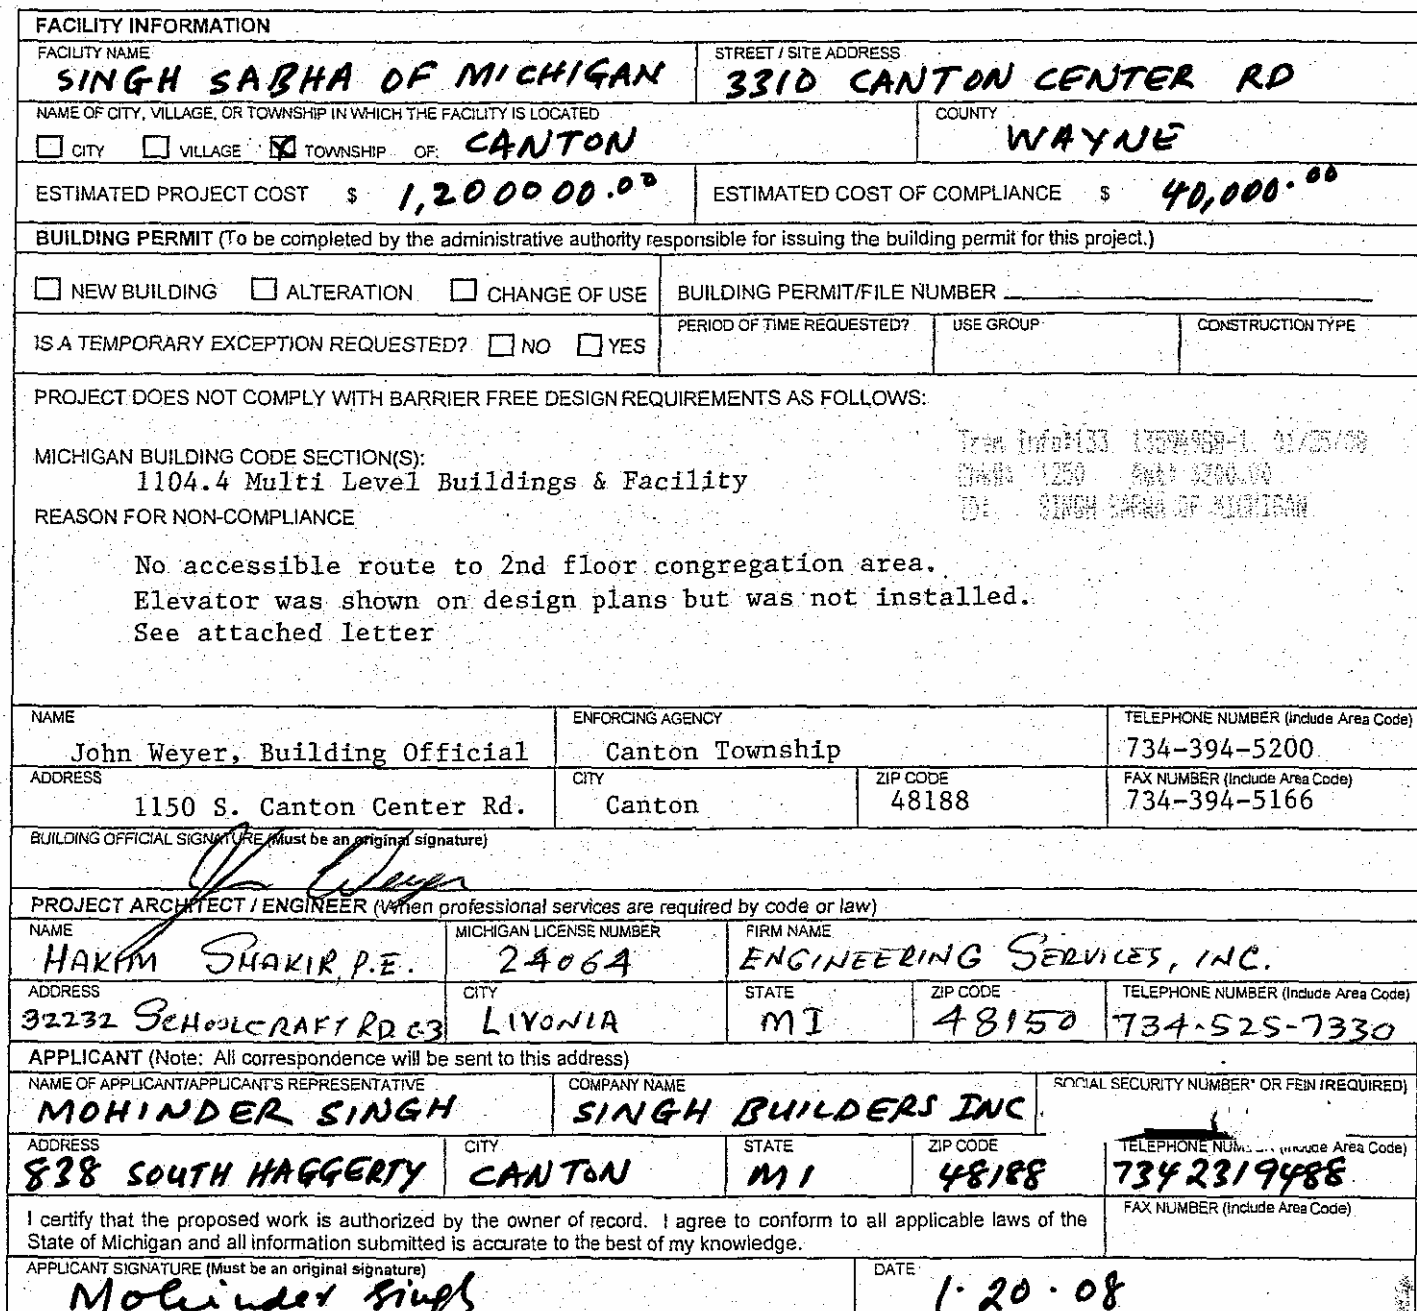 FACILITY INFORMATION
FACILITY NAME
SINGH SABHA OF MICHIGAN
STREET / SITE ADDRESS
3310 CANTON CENTER RD
NAME OF CITY, VILLAGE, OR TOWNSHIP IN WHICH THE FACILITY IS LOCATED
CITY VILLAGE TOWNSHIP OF: CANTON
COUNTY
WAYNE
ESTIMATED PROJECT COST $ 1,200000.00
ESTIMATED COST OF COMPLIANCE $ 40,000.00
BUILDING PERMIT (To be completed by the administrative authority responsible for issuing the building permit for this project.)
NEW BUILDING ALTERATION CHANGE OF USE
BUILDING PERMIT/FILE NUMBER
IS A TEMPORARY EXCEPTION REQUESTED? NO YES
PERIOD OF TIME REQUESTED?
USE GROUP
CONSTRUCTION TYPE
PROJECT DOES NOT COMPLY WITH BARRIER FREE DESIGN REQUIREMENTS AS FOLLOWS:
MICHIGAN BUILDING CODE SECTION(S):
1104.4 Multi Level Buildings & Facility
1250 $200.00
SINGH SABHA OF MICHIGAN
REASON FOR NON-COMPLIANCE
No accessible route to 2nd floor congregation area.
Elevator was shown on design plans but was not installed.
See attached letter
NAME
John Weyer, Building Official
ENFORCING AGENCY
Canton Township
TELEPHONE NUMBER (Include Area Code)
734-394-5200
ADDRESS
1150 S. Canton Center Rd.
CITY
Canton
ZIP CODE
48188
FAX NUMBER (Include Area Code)
734-394-5166
BUILDING OFFICIAL SIGNATURE (Must be an original signature)
John Weyer
PROJECT ARCHITECT / ENGINEER (When professional services are required by code or law)
NAME
HAKIM SHAKIR, P.E.
MICHIGAN LICENSE NUMBER
24064
FIRM NAME
ENGINEERING SERVICES, INC.
ADDRESS
32232 SCHOOLCRAFT RD C-3
CITY
LIVONIA
STATE
MI
ZIP CODE
48150
TELEPHONE NUMBER (Include Area Code)
734-525-7330
APPLICANT (Note: All correspondence will be sent to this address)
NAME OF APPLICANT/APPLICANT'S REPRESENTATIVE
MOHINDER SINGH
COMPANY NAME
SINGH BUILDERS INC
SOCIAL SECURITY NUMBER* OR FEIN (REQUIRED)
ADDRESS
838 SOUTH HAGGERTY
CITY
CANTON
STATE
MI
ZIP CODE
48188
TELEPHONE NUM Area Code)
7342319488
I certify that the proposed work is authorized by the owner of record. I agree to conform to all applicable laws of the
State of Michigan and all information submitted is accurate to the best of my knowledge.
FAX NUMBER (Include Area Code)
APPLICANT SIGNATURE (Must be an original signature)
Mohinder Singh
DATE
1.20.08